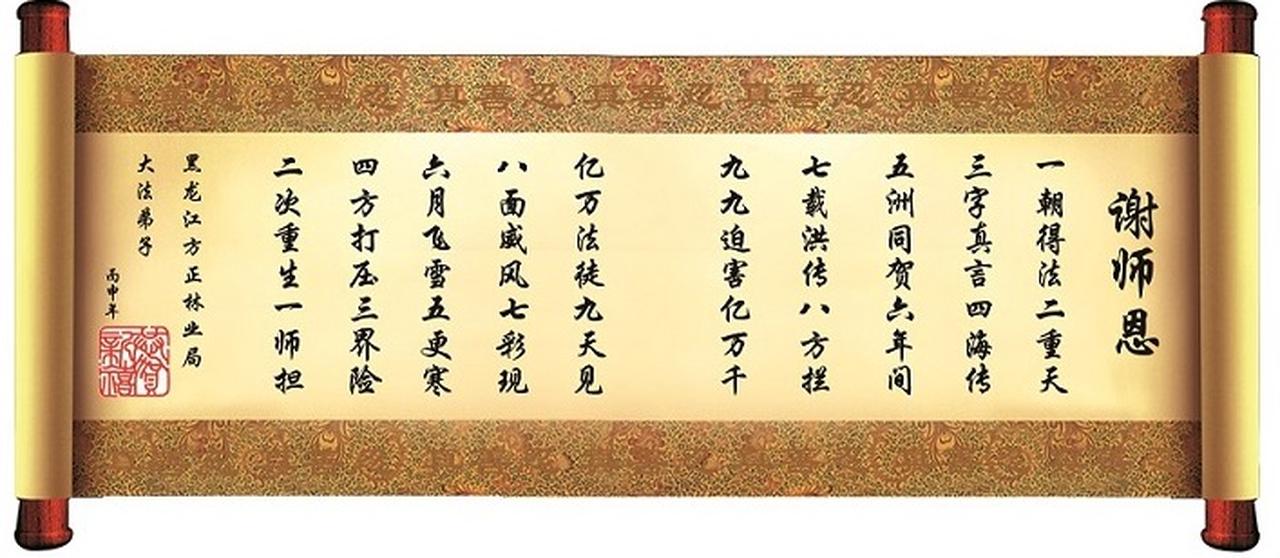 真善忍 真善忍 真善忍
谢师恩
一朝得法二重天
三字真言四海传
五洲同贺六年间
七载洪传八方拦
九九迫害亿万千
亿万法徒九天见
八面威风七彩现
六月飞雪五更寒
四方打压三界险
二次重生一师担
黑龙江方正林业局
大法弟子
丙申年
恭贺新禧